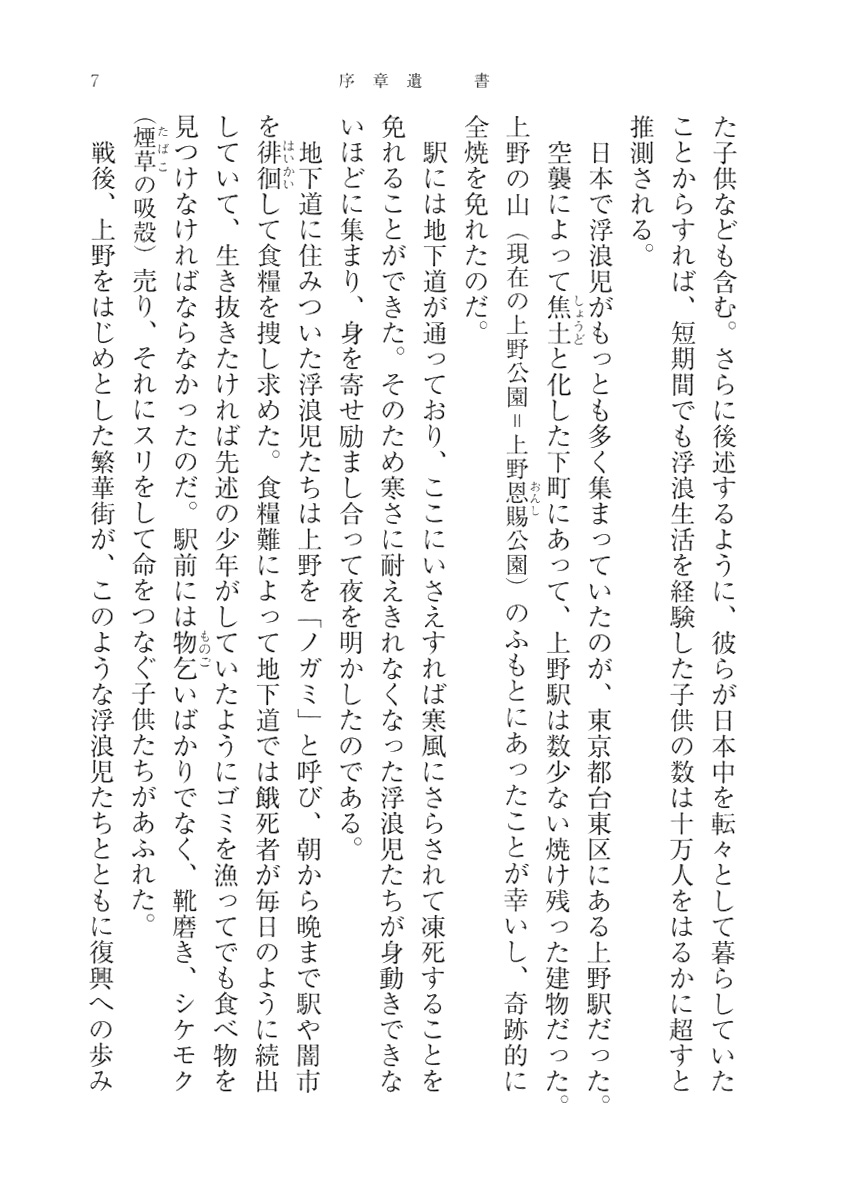 7
序章 遺書
た子供なども含む。さらに後述するように、彼らが日本中を転々として暮らしていた
ことからすれば、短期間でも浮浪生活を経験した子供の数は十万人をはるかに超すと
推測される。
日本で浮浪児がもっとも多く集まっていたのが、東京都台東区にある上野駅だった。
空襲によって焦土と化した下町にあって、上野駅は数少ない焼け残った建物だった。
しょうど
上野の山（現在の上野公園＝上野恩賜公園）のふもとにあったことが幸いし、奇跡的に
おんし
全焼を免れたのだ。
駅には地下道が通っており、ここにいさえすれば寒風にさらされて凍死することを
免れることができた。そのため寒さに耐えきれなくなった浮浪児たちが身動きできな
いほどに集まり、身を寄せ励まし合って夜を明かしたのである。
地下道に住みついた浮浪児たちは上野を「ノガミ」と呼び、朝から晩まで駅や闇市
を徘徊して食糧を捜し求めた。食糧難によって地下道では餓死者が毎日のように続出
はいかい
していて、生き抜きたければ先述の少年がしていたようにゴミを漁ってでも食べ物を
見つけなければならなかったのだ。駅前には物乞いばかりでなく、靴磨き、シケモク
ものご
（煙草の吸殻）売り、それにスリをして命をつなぐ子供たちがあふれた。
たばこ
戦後、上野をはじめとした繁華街が、このような浮浪児たちとともに復興への歩み